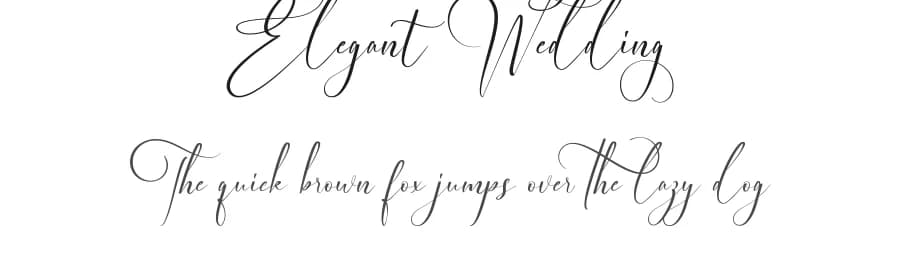 Elegant Wedding
The quick brown fox jumps over the lazy dog